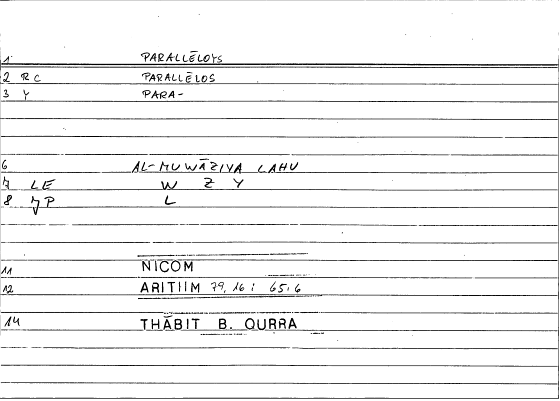 1 PARALLĒLOYS
2 RC PARALLĒLOS
3 Y PARA-
6 AL-MUWĀZIYA LAHU
7 LE W Z Y
8 JP L
11 NICOM
12 ARITIIM 79,16: 65,6
14 THĀBIT B. QURRA